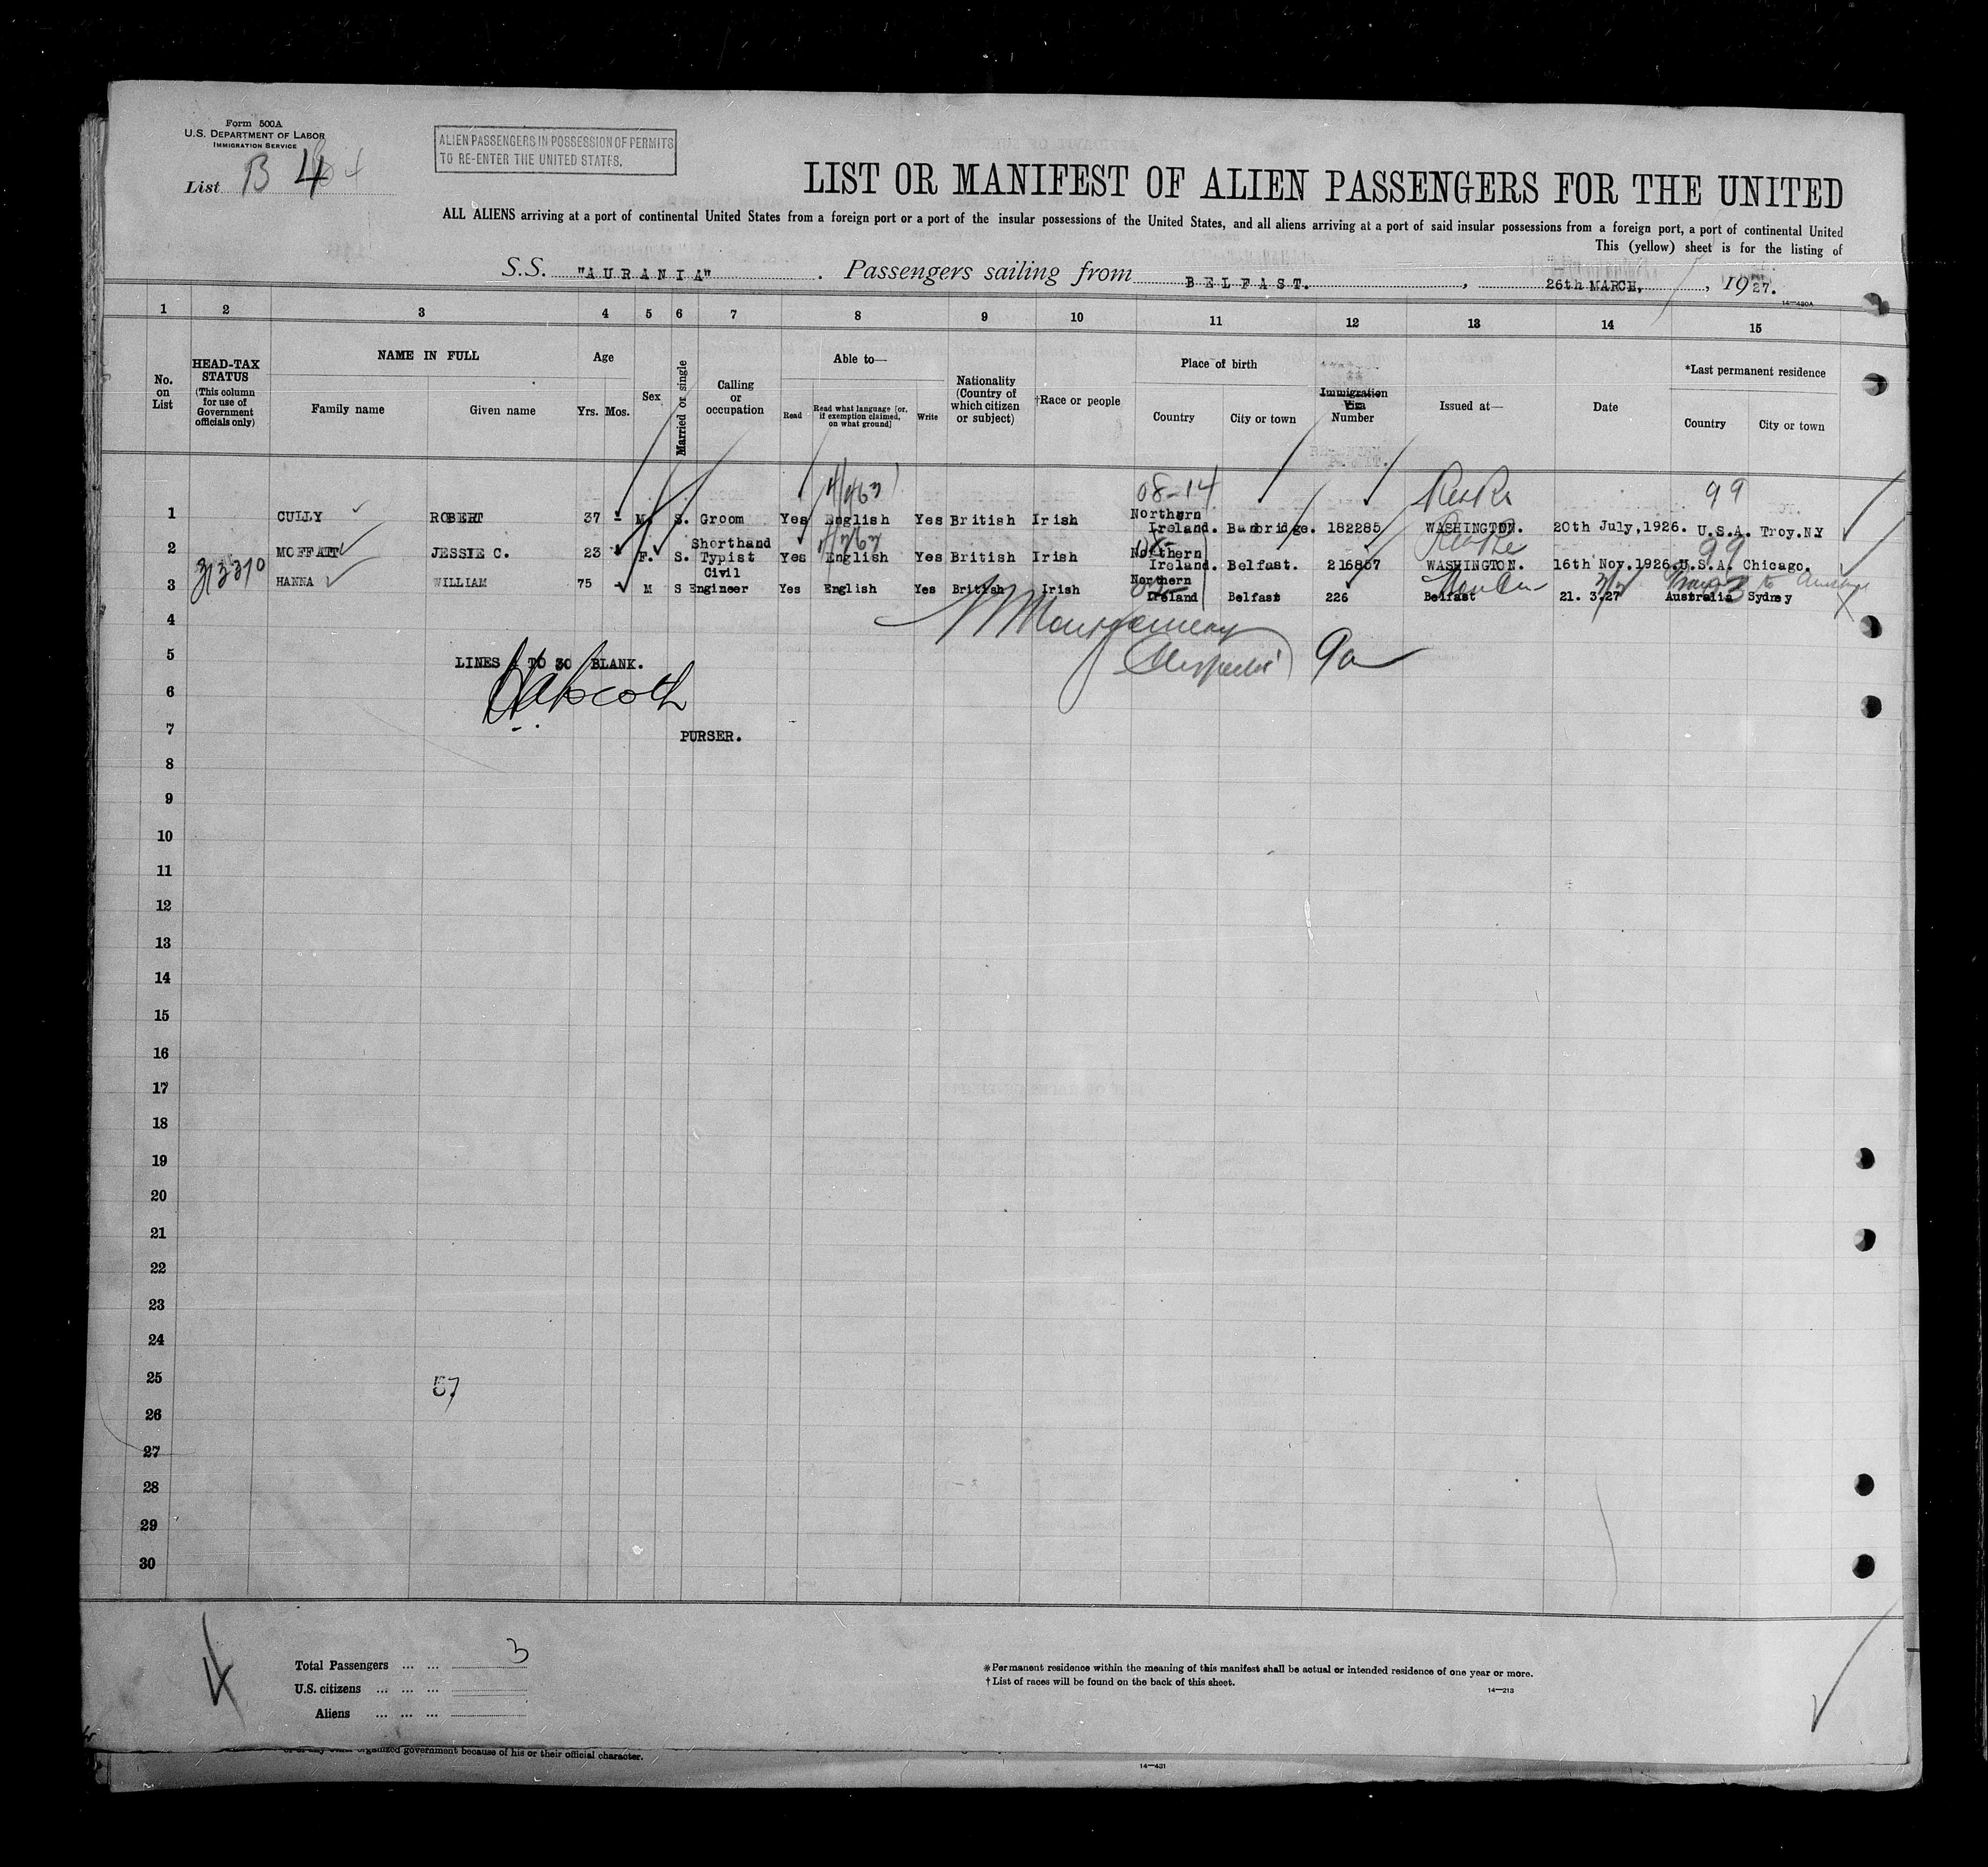 Form 500A
U.S. DEPARTMENT OF LABOR
IMMIGRATION SERVICE
List B 4
ALIEN PASSENGERS IN POSSESSION OF PERMITS
TO RE-ENTER THE UNITED STATES.
LIST OR MANIFEST OF ALIEN PASSENGERS FOR THE UNITED
ALL ALIENS arriving at a port of continental United States from a foreign port or a port of the insular possessions of the United States, and all aliens arriving at a port of said insular possessions from a foreign port, a port of continental United
This (yellow) sheet is for the listing of
S.S. "AURANIA". Passengers sailing from BELFAST., 26th MARCH, 1927.
14—430A
1 2 3 4 5 6 7 8 9 10 11 12 13 14 15
No. on List
HEAD-TAX STATUS (This column for use of Government officials only)
NAME IN FULL
Family name Given name
Age
Yrs. Mos.
Sex
Married or single
Calling or occupation
Able to—
Read
Read what language [or, if exemption claimed, on what ground]
Write
Nationality (Country of which citizen or subject)
†Race or people
Place of birth
Country City or town
Immigration Visa Number
Issued at—
Date
*Last permanent residence
Country City or town
08-14 99
1 CULLY ROBERT 37 - M. S. Groom Yes English Yes British Irish Northern Ireland. Banbridge. 182285 WASHINGTON. 20th July,1926. U.S.A. Troy.NY
99
2 MOFFATT JESSIE C. 23 F. S. Shorthand Typist Yes English Yes British Irish Northern Ireland. Belfast. 216867 WASHINGTON. 16th Nov.1926. U.S.A. Chicago.
3 HANNA WILLIAM 75 - M S Civil Engineer Yes English Yes British Irish Northern Ireland Belfast 226 Belfast 21. 3.27 Australia Sydney
4
Montgomery
5 LINES 4 TO 30 BLANK.
6
7 PURSER.
8
9
10
11
12
13
14
15
16
17
18
19
20
21
22
23
24
25 57
26
27
28
29
30
Total Passengers ... ... 3
U.S. citizens ... ... ...
Aliens ... ... ...
*Permanent residence within the meaning of this manifest shall be actual or intended residence of one year or more.
†List of races will be found on the back of this sheet.
14—213
organized government because of his or their official character.
14—431